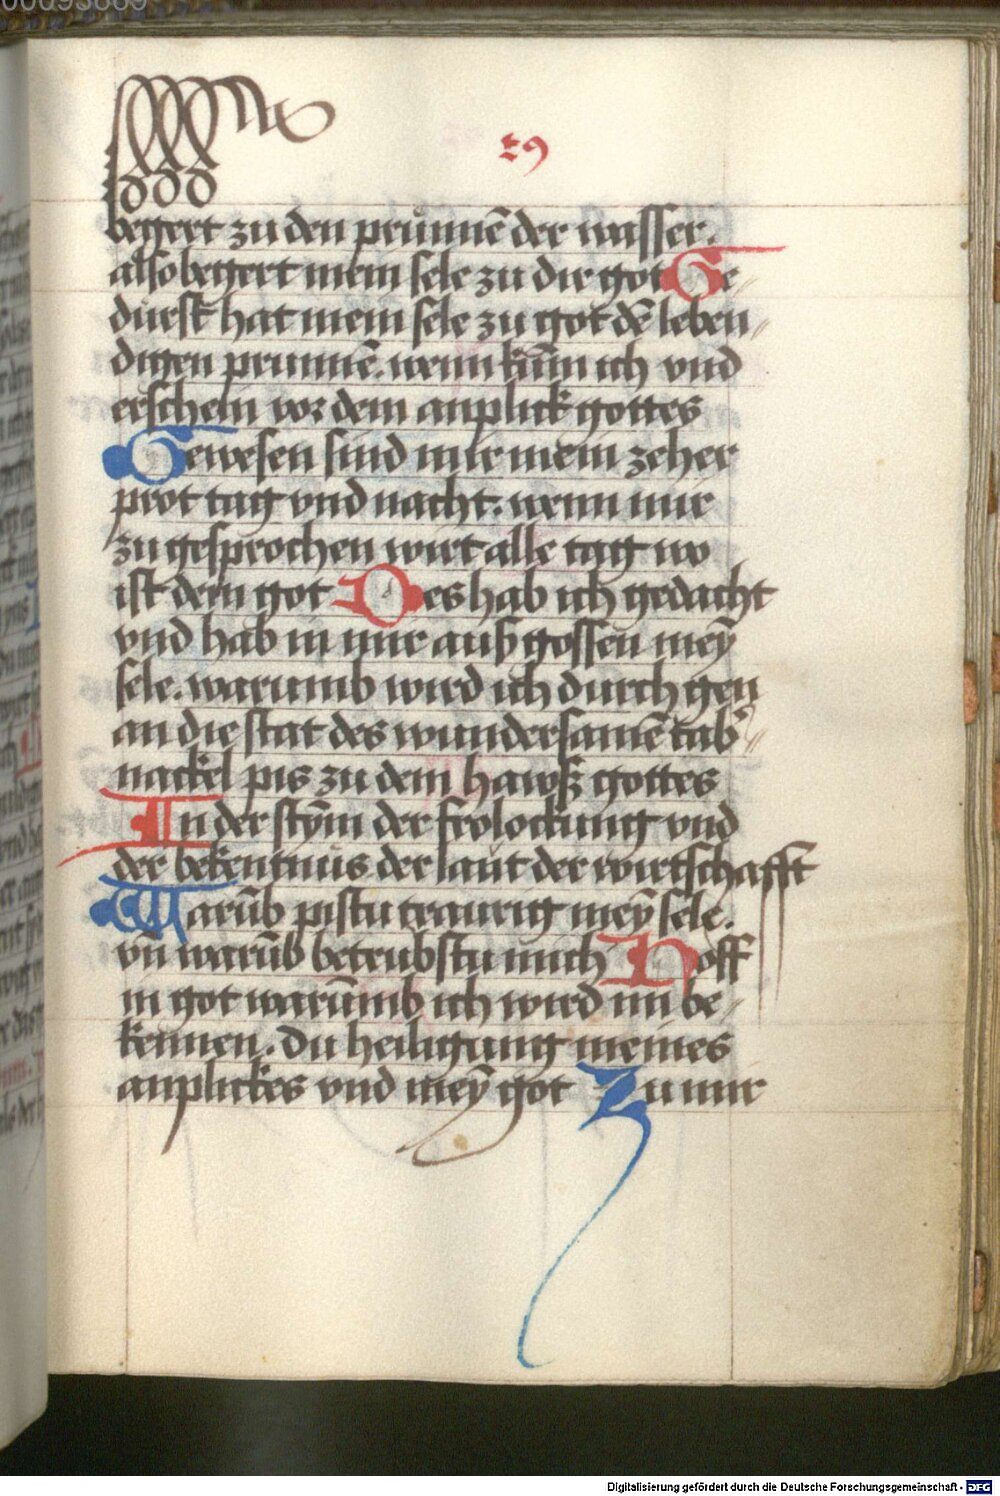 00093869
29
begert zu den prunnē der wasser.
also begert mein sele zu dir got Ge
dürst hat mein sele zu got dē leben
digen prunnē. wenn kum̄ ich vnd
erschein vor dem anplick gottes
Gewesen sind mir mein zeher
prot tag vnd nacht. wenn mir
zu gesprochen wirt alle tag wo
ist dein got Des hab ich gedacht
vnd hab in mir auß gossen mey̅
sele. warumb wird ich durch gen
an die stat des wundersamē tab
nackel pis zu dem hawß gottes
In der stym̄ der frolockung vnd
der bekentnus der laut der wirtschafft
Warūb pistu traurig mey̅ sele.
vn̄ warūb betrubstu mich Hoff
in got warūmb ich wird im be
kennen. du heiligung meines
anplickes vnd mey̅ got Zu mir
Digitalisierung gefördert durch die Deutsche Forschungsgemeinschaft - DFG